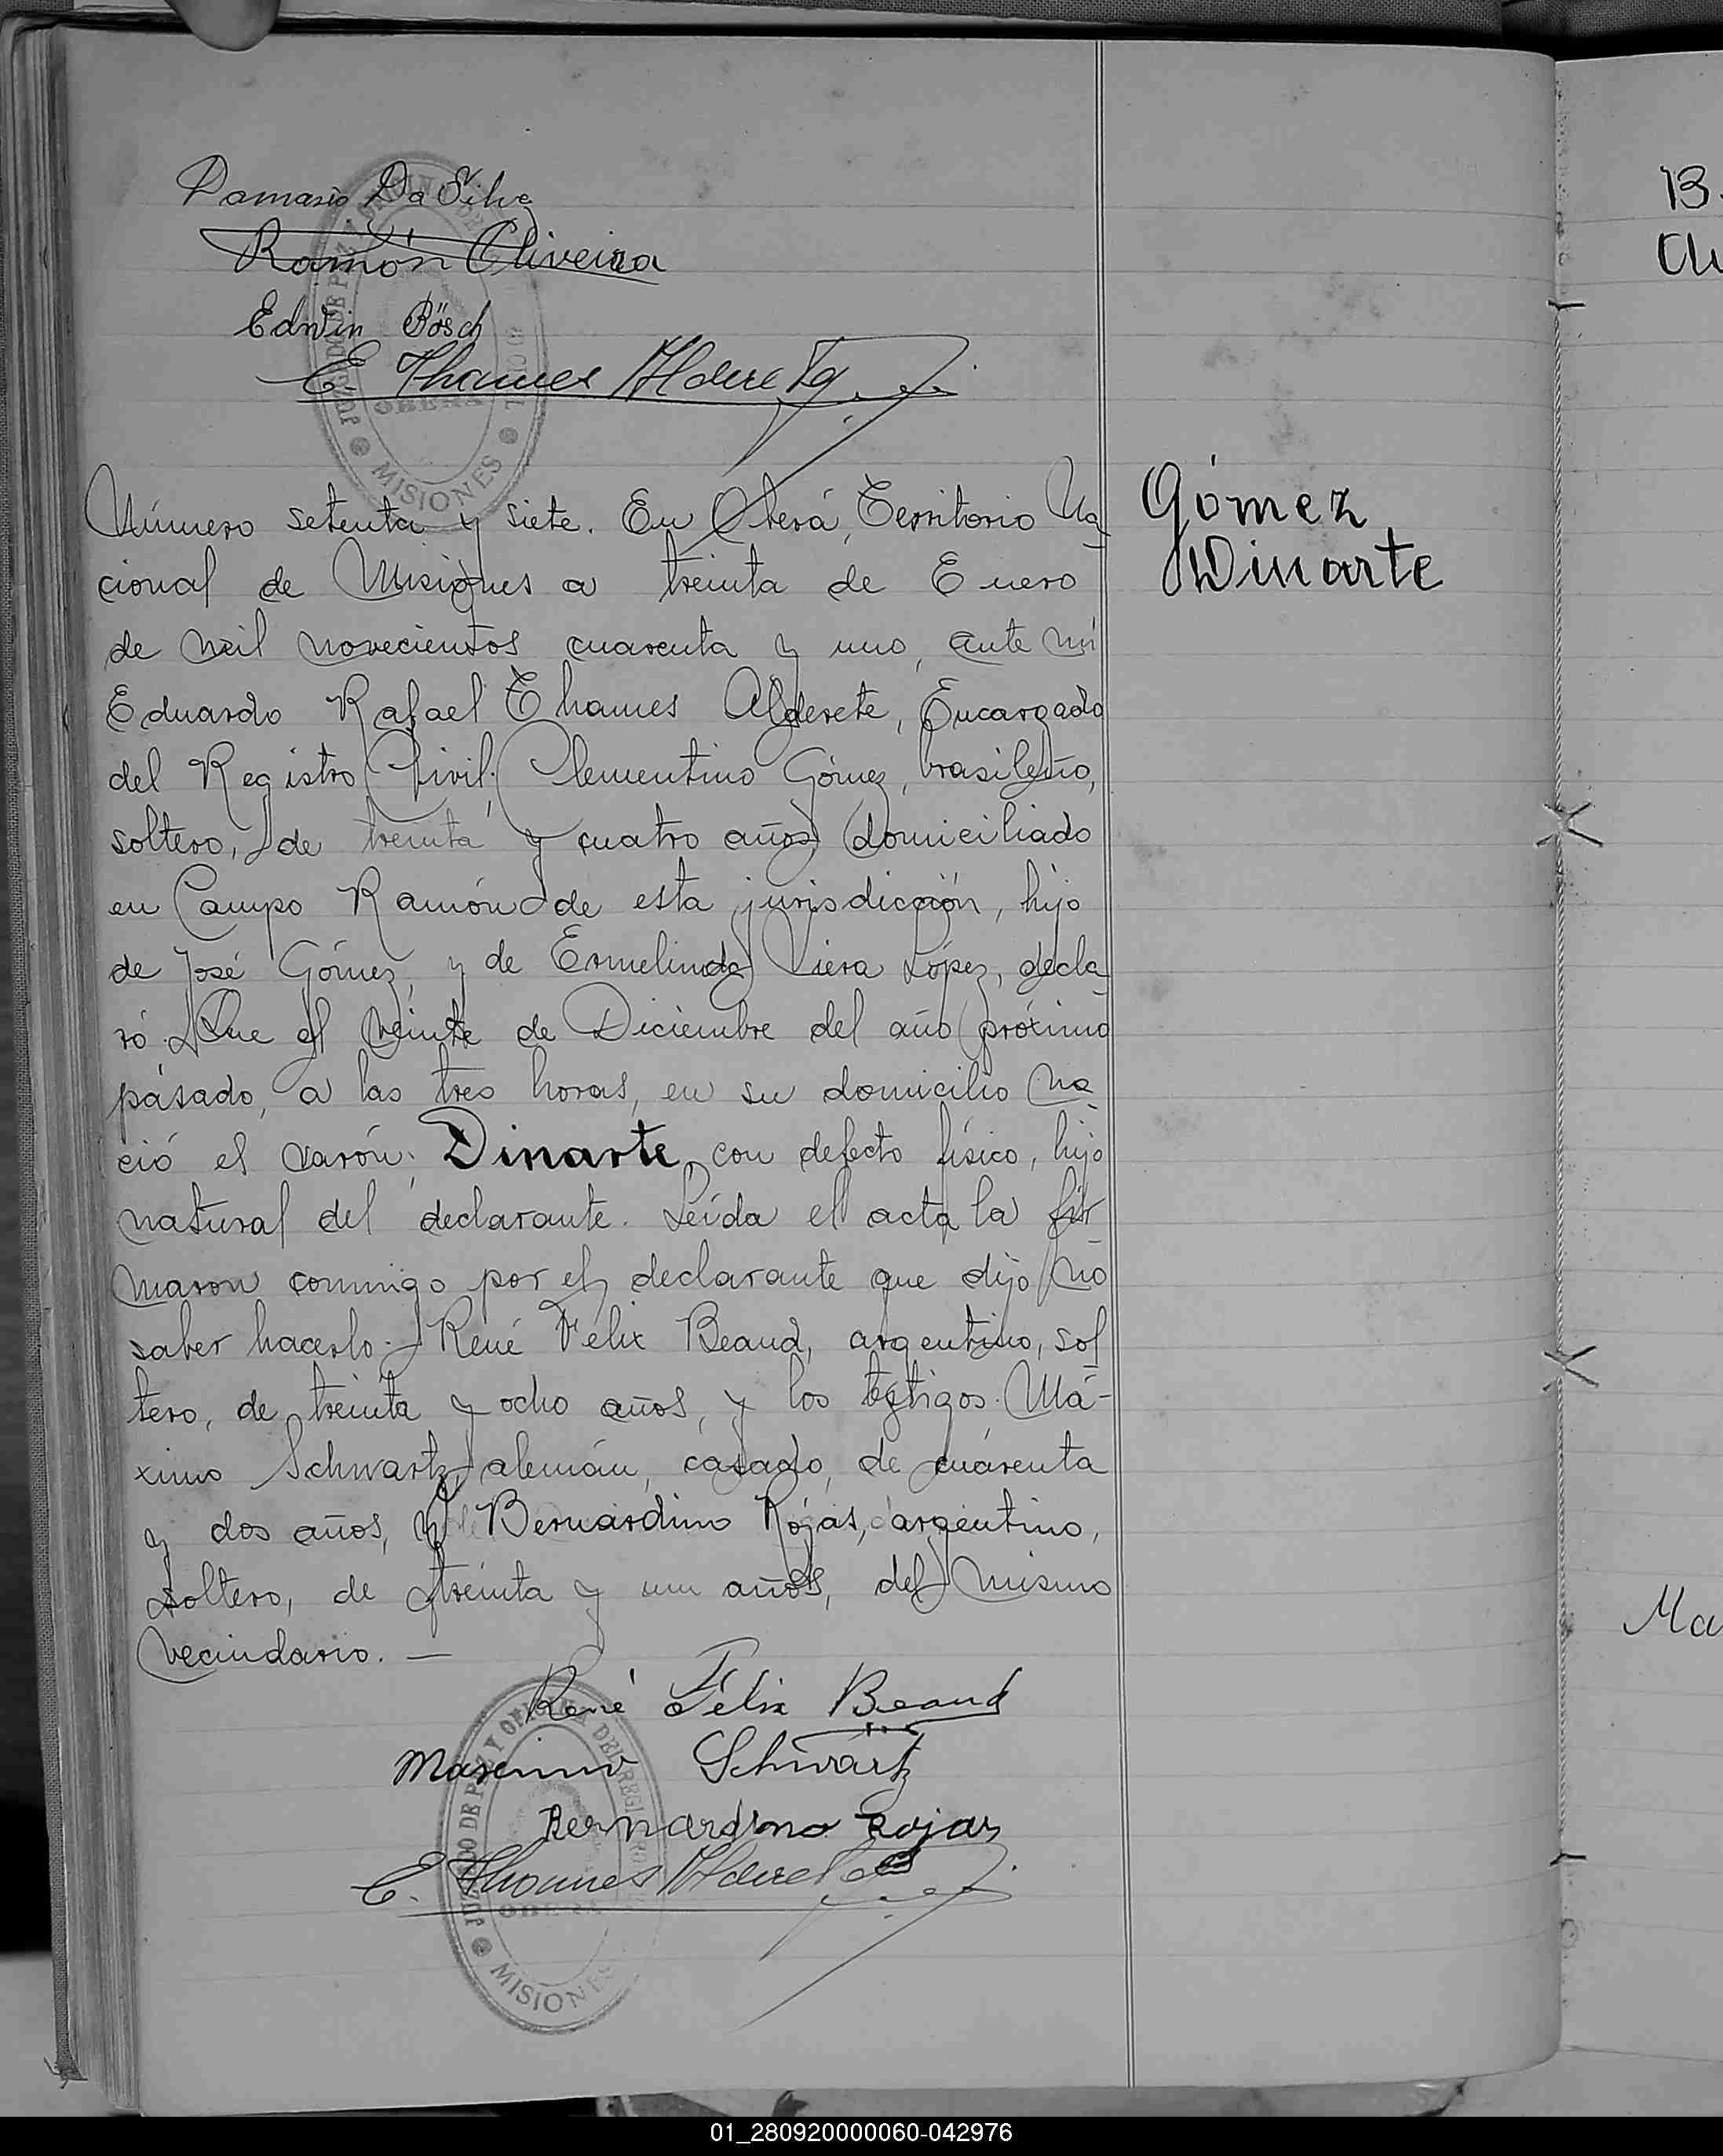 Damasio Da Silva
Ramón Oliveira
Edwin Bösch
E. Thames Alderete
MISIONES
Gómez
Dinarte
Número setenta y siete. En Oberá, Territorio Na
cional de Misiones a treinta de Enero
de mil novecientos cuarenta y uno, ante mí
Eduardo Rafael Thames Alderete, Encargado
del Registro Civil; Clementino Gómez, brasileño,
soltero, de treinta y cuatro años, domiciliado
en Campo Ramón de esta jurisdicción, hijo
de José Gómez, y de Ermelinda Viera López, decla
ró: Que el veinte de Diciembre del año próximo
pasado, a las tres horas, en su domicilio na
ció el varón; Dinarte, con defecto físico, hijo
natural del declarante. Leída el acta la fir
maron conmigo por el declarante que dijo no
saber hacerlo: René Félix Beaud, argentino, sol
tero, de treinta y ocho años, y los testigos: Má-
ximo Schwartz, alemán, casado, de cuarenta
y dos años, y Bernardino Rojas, argentino,
soltero, de treinta y un años, del mismo
vecindario. —
René Félix Beaud
Maximino Schwartz
Bernardino Rojas
E. Thames Alderete
JUZGADO DE PAZ Y OFICINA DEL REGISTRO
MISIONES
13.
Ma
01_280920000060-042976